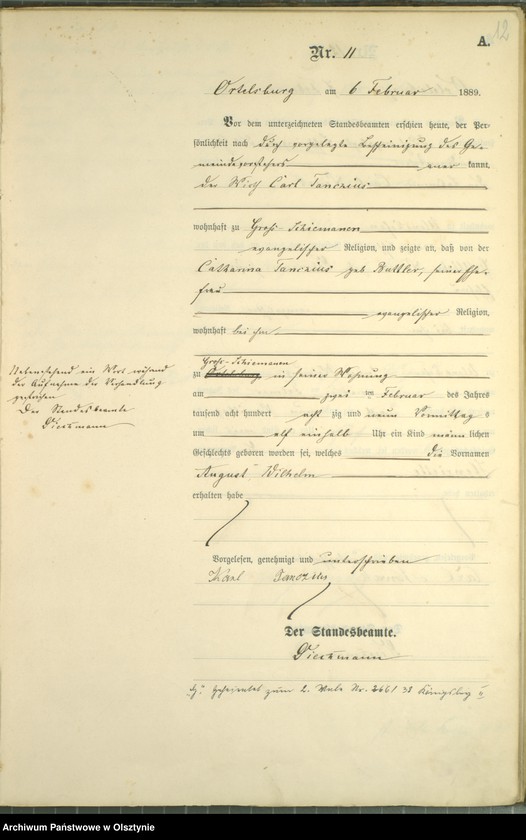 12
A.
Nr. 11
Ortelsburg am 6 Februar 1889.
Vor dem unterzeichneten Standesbeamten erschien heute, der Per-
sönlichkeit nach durch vorgelegte Bescheinigung des Ge-
meindevorstehers kannt,
der Wirth Carl Tanczius
wohnhaft zu Groß-Schiemanen
evangelischer Religion, und zeigte an, daß von der
Catharina Tanczius geb Battler, seiner Ehe-
frau
evangelischer Religion,
wohnhaft bei ihm
Groß-Schiemanen
zu Ortelsburg in seiner Wohnung
am zwei ten Februar des Jahres
tausend acht hundert acht zig und neun Vormittags
um elf einhalb Uhr ein Kind männlichen
Geschlechts geboren worden sei, welches die Vornamen
August Wilhelm
erhalten habe
Nebenstehend ein Wort während
der Aufnahme der Verhandlung
gestrichen
Der Standesbeamte
Dieckmann
Vorgelesen, genehmigt und unterschrieben
Karl Tanczius
Der Standesbeamte.
Dieckmann
Geheiratet zum 2. Male Nr. 2661 38 Königsberg
Archiwum Państwowe w Olsztynie